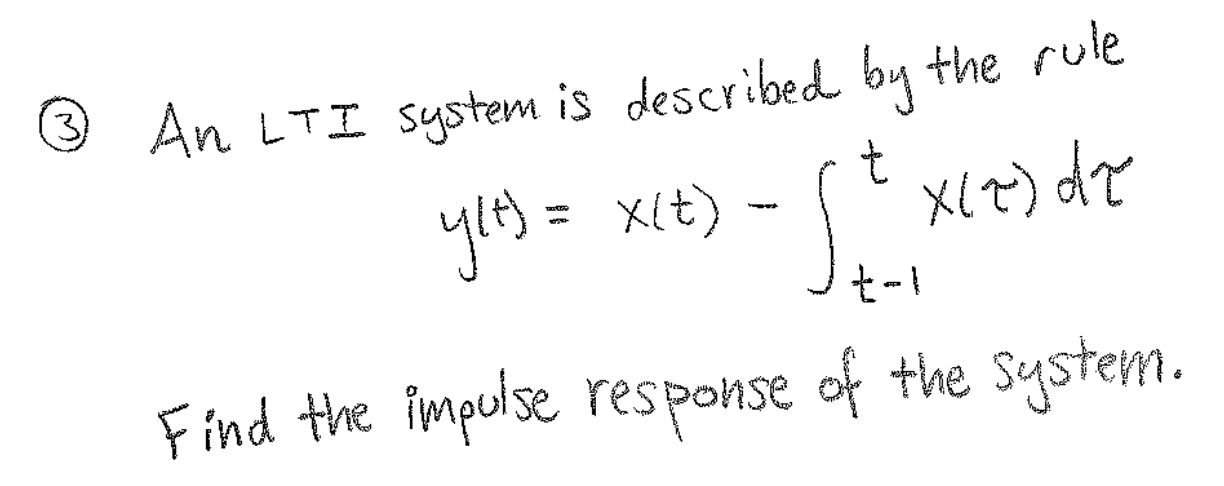 ③ An LTI system is described by the rule
y(t) = x(t) - ∫_{t-1}^{t} x(τ) dτ
Find the impulse response of the system.